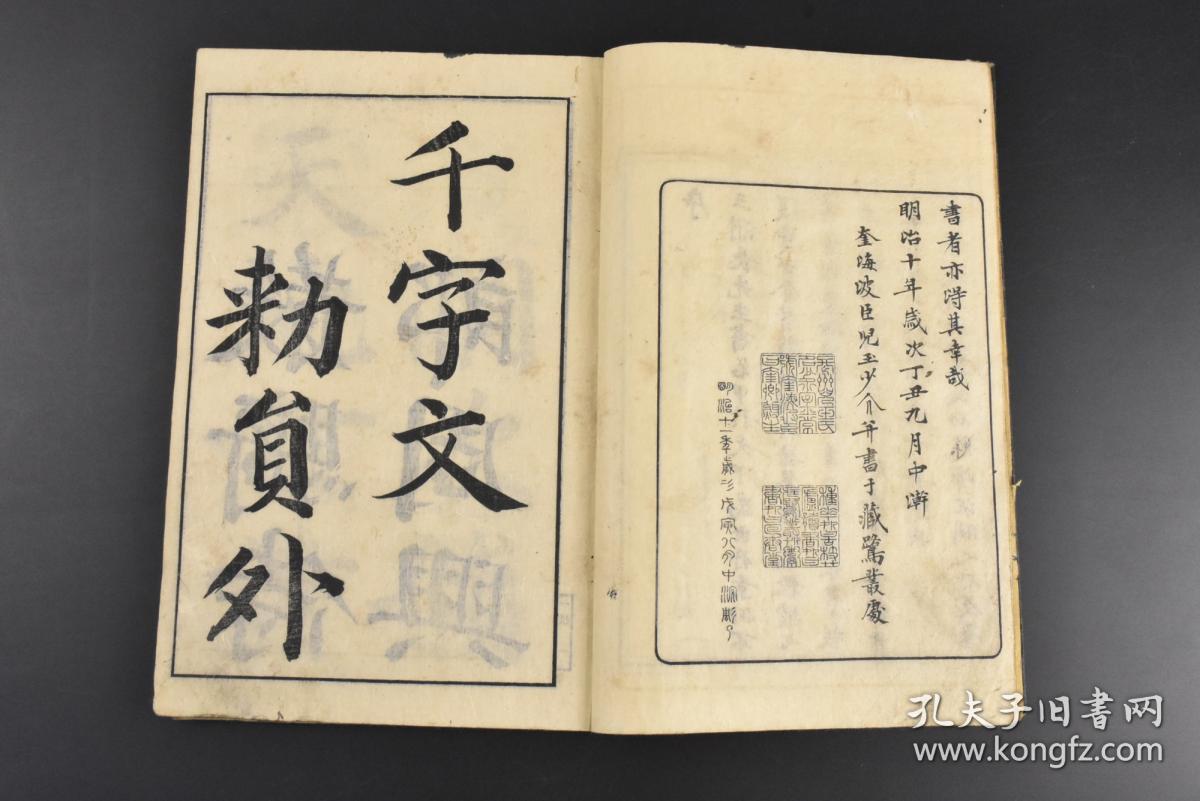 書者亦得其幸哉
明治十年歳次丁丑九月中澣
奎海波臣児玉少介并書于藏鷺叢處
明治十一季歳次戊寅八月中澣
千字文
勅員外
孔夫子旧書网
www.kongfz.com